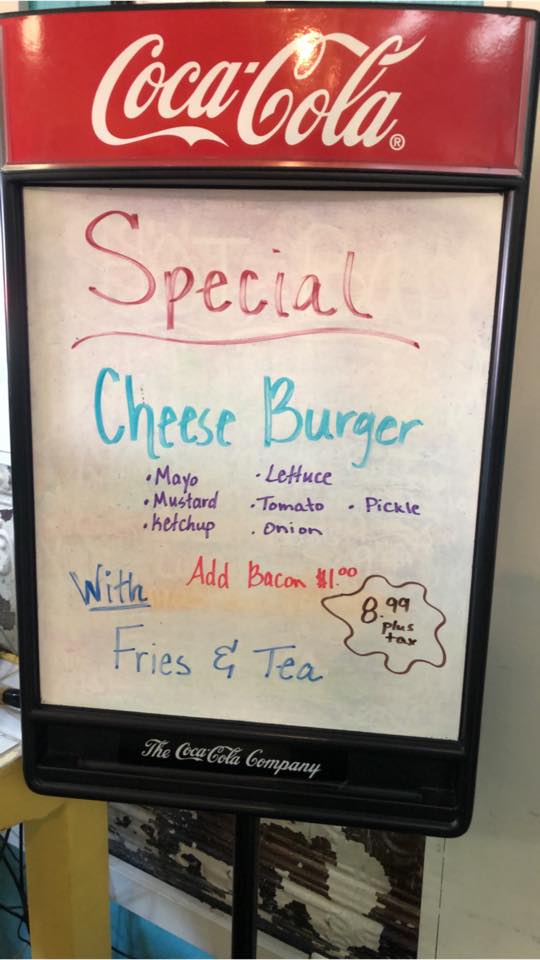 Coca-Cola®
Special
Cheese Burger
• Mayo • Lettuce
• Mustard • Tomato • Pickle
• Ketchup • Onion
Add Bacon $1.00
With
8.99
plus
tax
Fries & Tea
The Coca-Cola Company